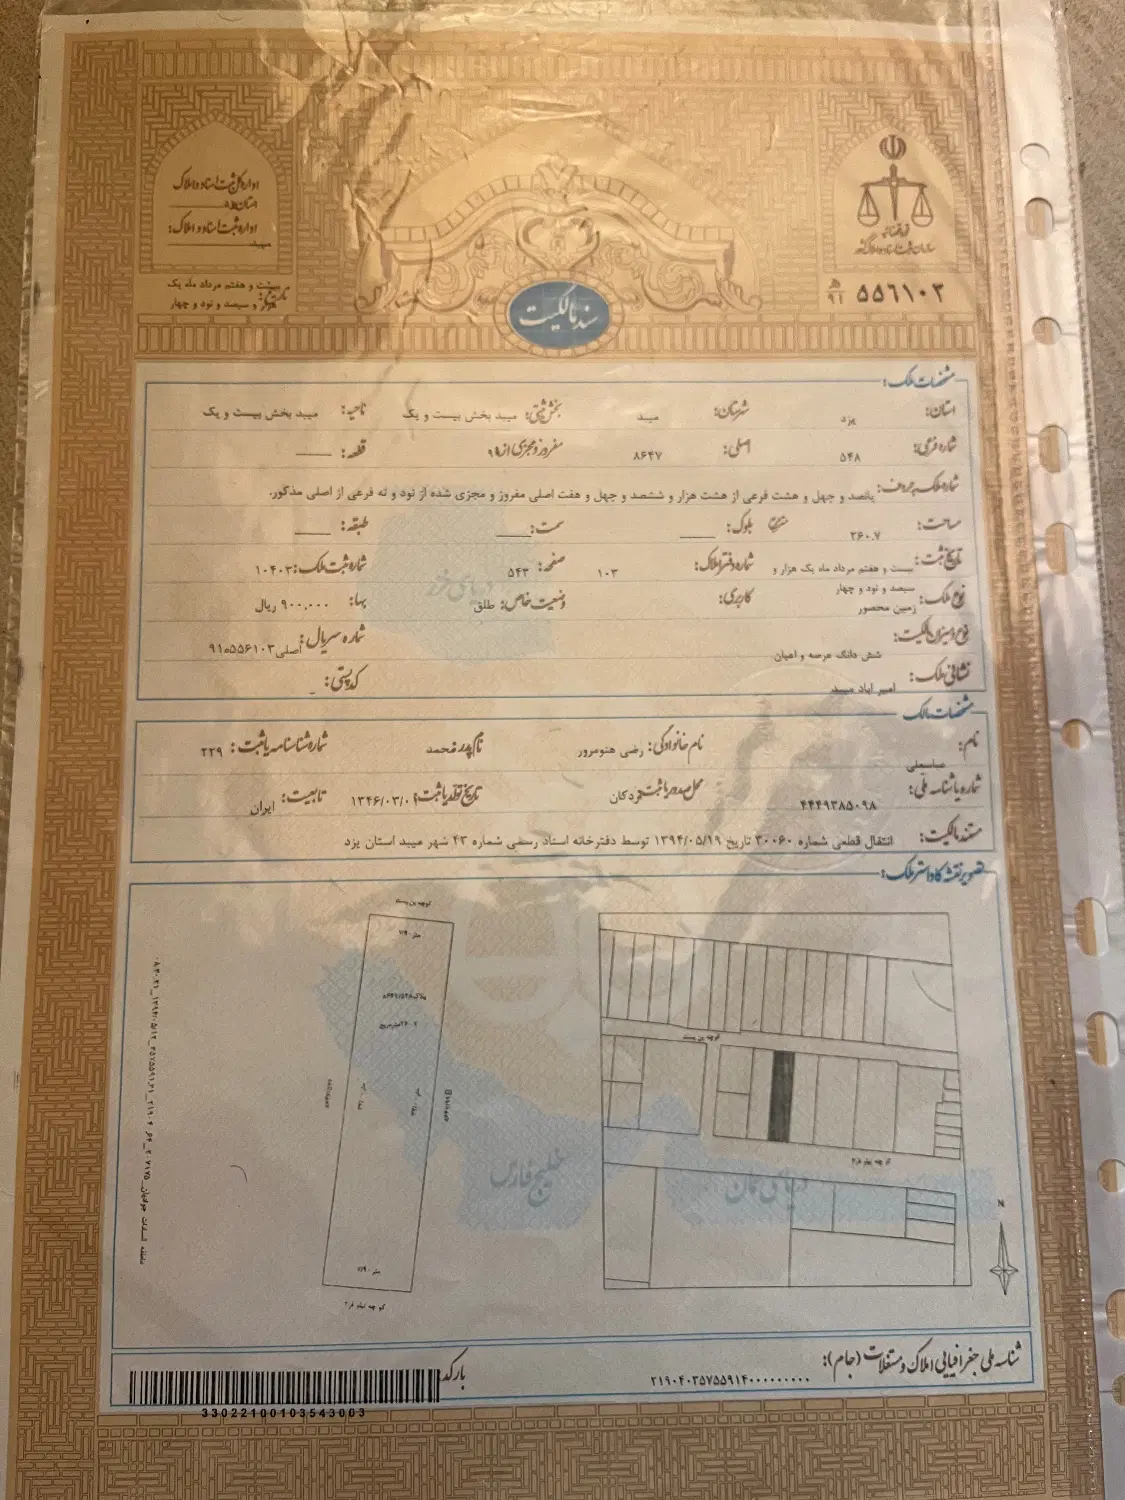 اداره کل ثبت اسناد و املاک
استان یزد
اداره ثبت اسناد و املاک:
میبد
تاریخ: بیست و هفتم مرداد ماه یک
هزار و سیصد و نود و چهار
قوه قضائیه
سازمان ثبت اسناد و املاک کشور
۵۵۶۱۰۳ ه‍/۹۱
سند مالکیت
مشخصات ملک:
استان: یزد شهرستان: میبد بخش ثبتی: میبد بخش بیست و یک ناحیه: میبد بخش بیست و یک
شماره فرعی: ۵۴۸ اصلی: ۸۶۴۷ مفروز و مجزی از ۹۹ قطعه:
شماره ملک به حروف: پانصد و چهل و هشت فرعی از هشت هزار و ششصد و چهل و هفت اصلی مفروز و مجزی شده از نود و نه فرعی از اصلی مذکور.
مساحت: ۲۶۰.۷ بلوک: سمت: طبقه:
تاریخ ثبت: بیست و هفتم مرداد ماه یک هزار و سیصد و نود و چهار شماره دفتر املاک: ۱۰۳ صفحه: ۵۴۳ شماره ثبت ملک: ۱۰۴۰۳
نوع ملک: زمین محصور کاربری: وضعیت خاص: طلق بها: ۹۰۰,۰۰۰ ریال
نوع و میزان مالکیت: شش دانگ عرصه و اعیان شماره سریال: اصلی ۵۵۶۱۰۳ه۹۱
نشانی ملک: امیر اباد میبد کد پستی: -
مشخصات مالک
نام: عباسعلی نام خانوادگی: رضی هنومرور نام پدر: محمد شماره شناسنامه یا ثبت: ۲۲۹
شماره یا شناسه ملی: ۴۴۴۹۳۸۵۰۹۸ محل صدور یا ثبت: اردکان تاریخ تولد یا ثبت: ۱۳۴۶/۰۳/۰۱ تابعیت: ایران
مستند مالکیت: انتقال قطعی شماره ۳۰۰۶۰ تاریخ ۱۳۹۴/۰۵/۱۹ توسط دفترخانه اسناد رسمی شماره ۴۳ شهر میبد استان یزد
تصویر نقشه کاداستر ملک:
کوچه بن بست
کوچه بن بست
دریای خزر
خلیج فارس
دریای عمان
N
شناسه ملی جغرافیایی املاک و مستغلات (جام): ۲۱۹۰۴۰۳۵۷۵۵۹۱۴۰۰۰۰۰۰۰۰۰
بارکد
33022100103543003